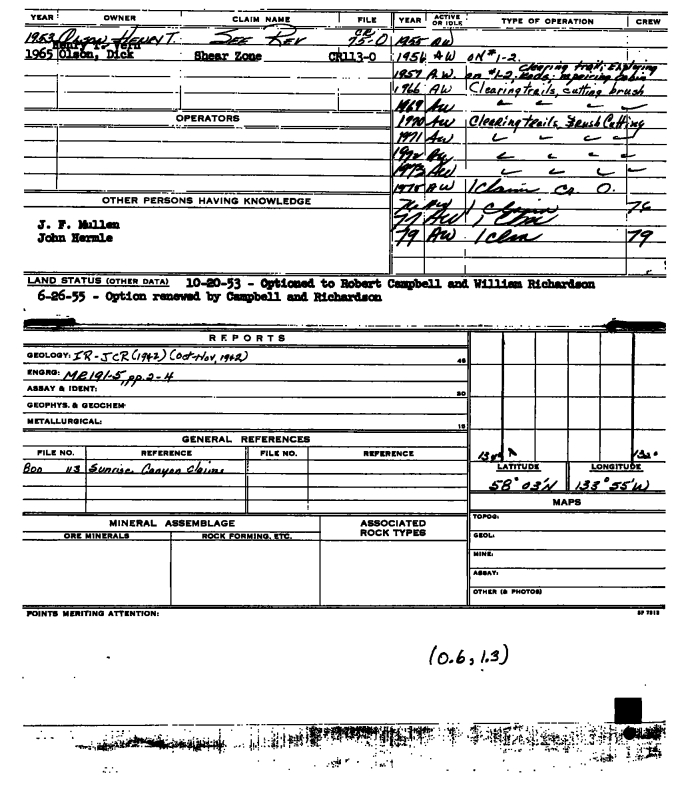 YEAR OWNER CLAIM NAME FILE YEAR ACTIVE OR IDLE TYPE OF OPERATION CREW
1953 Olson, HENRY T. SEE REV 75-0 1955 AW
Henry T. Vern
1965 Olson, Dick Shear Zone CR113-0 1956 AW on #1-2.
1957 A.W. on #1-2, clearing trail, repairing cabin
1966 AW Clearing trails, cutting brush
1969 AW " " " "
OPERATORS 1970 AW Clearing trails, Brush Cutting
1971 AW " " " "
1972 AW " " " "
1973 AW " " " "
1975 AW 1 Claim Co. O.
OTHER PERSONS HAVING KNOWLEDGE 76 AW 1 Claim 76
J. F. Mullen 77 AW 1 clm
John Hermle 79 AW 1 clm 79
LAND STATUS (OTHER DATA) 10-20-53 - Optioned to Robert Campbell and William Richardson
6-26-55 - Option renewed by Campbell and Richardson
REPORTS
GEOLOGY: IR-JCR (1942) (Oct-Nov, 1942)
ENGRG: MR191-5, pp. 2-4
ASSAY & IDENT:
GEOPHYS. & GEOCHEM
METALLURGICAL:
GENERAL REFERENCES
FILE NO. REFERENCE FILE NO. REFERENCE
113 Sunrise Canyon Claims
LATITUDE LONGITUDE
58° 03'N 133° 55'W
MAPS
TOPOG:
GEOL:
MINE:
ASSAY:
OTHER (& PHOTOS)
MINERAL ASSEMBLAGE ASSOCIATED ROCK TYPES
ORE MINERALS ROCK FORMING, ETC.
POINTS MERITING ATTENTION:
(0.6, 1.3)